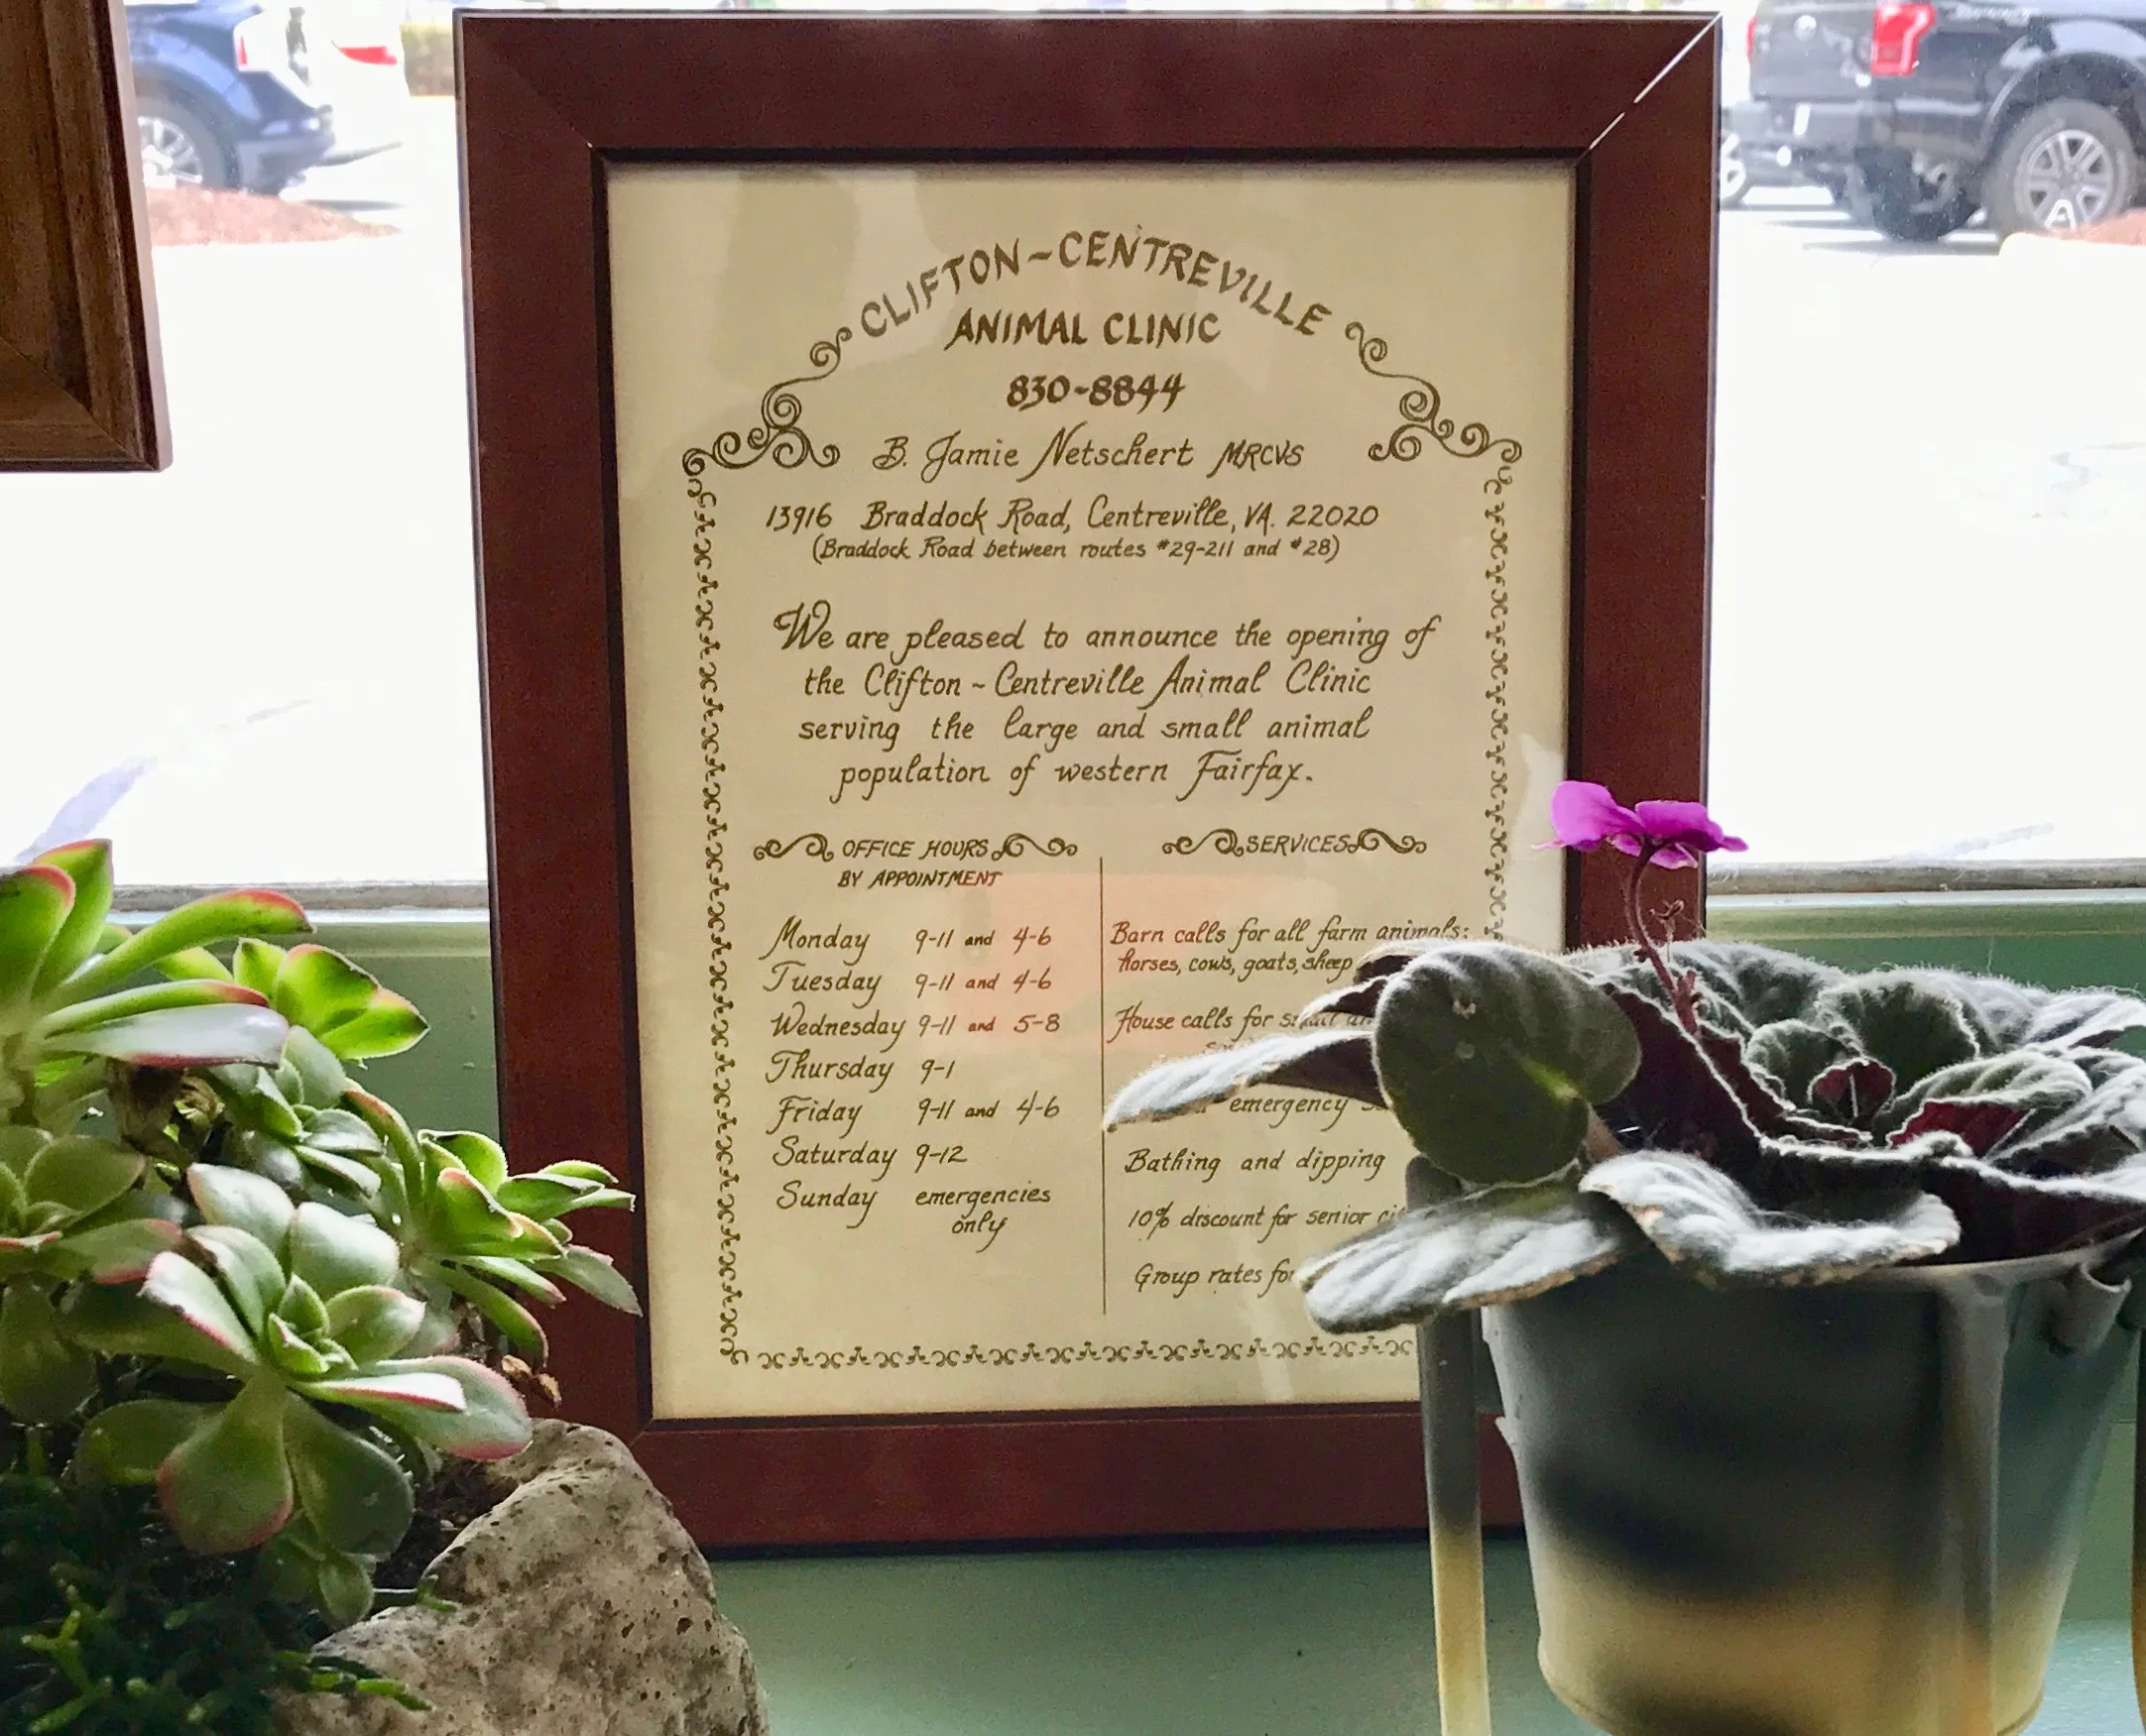 CLIFTON~CENTREVILLE
ANIMAL CLINIC
830-8844
B. Jamie Netschert MRCVS
13916 Braddock Road, Centreville, VA. 22020
(Braddock Road between routes #29-211 and #28)
We are pleased to announce the opening of
the Clifton~Centreville Animal Clinic
serving the large and small animal
population of western Fairfax.
OFFICE HOURS
BY APPOINTMENT
Monday 9-11 and 4-6
Tuesday 9-11 and 4-6
Wednesday 9-11 and 5-8
Thursday 9-1
Friday 9-11 and 4-6
Saturday 9-12
Sunday emergencies
only
SERVICES
Barn calls for all farm animals:
horses, cows, goats, sheep
House calls for small
emergency
Bathing and dipping
10% discount for senior
Group rates for